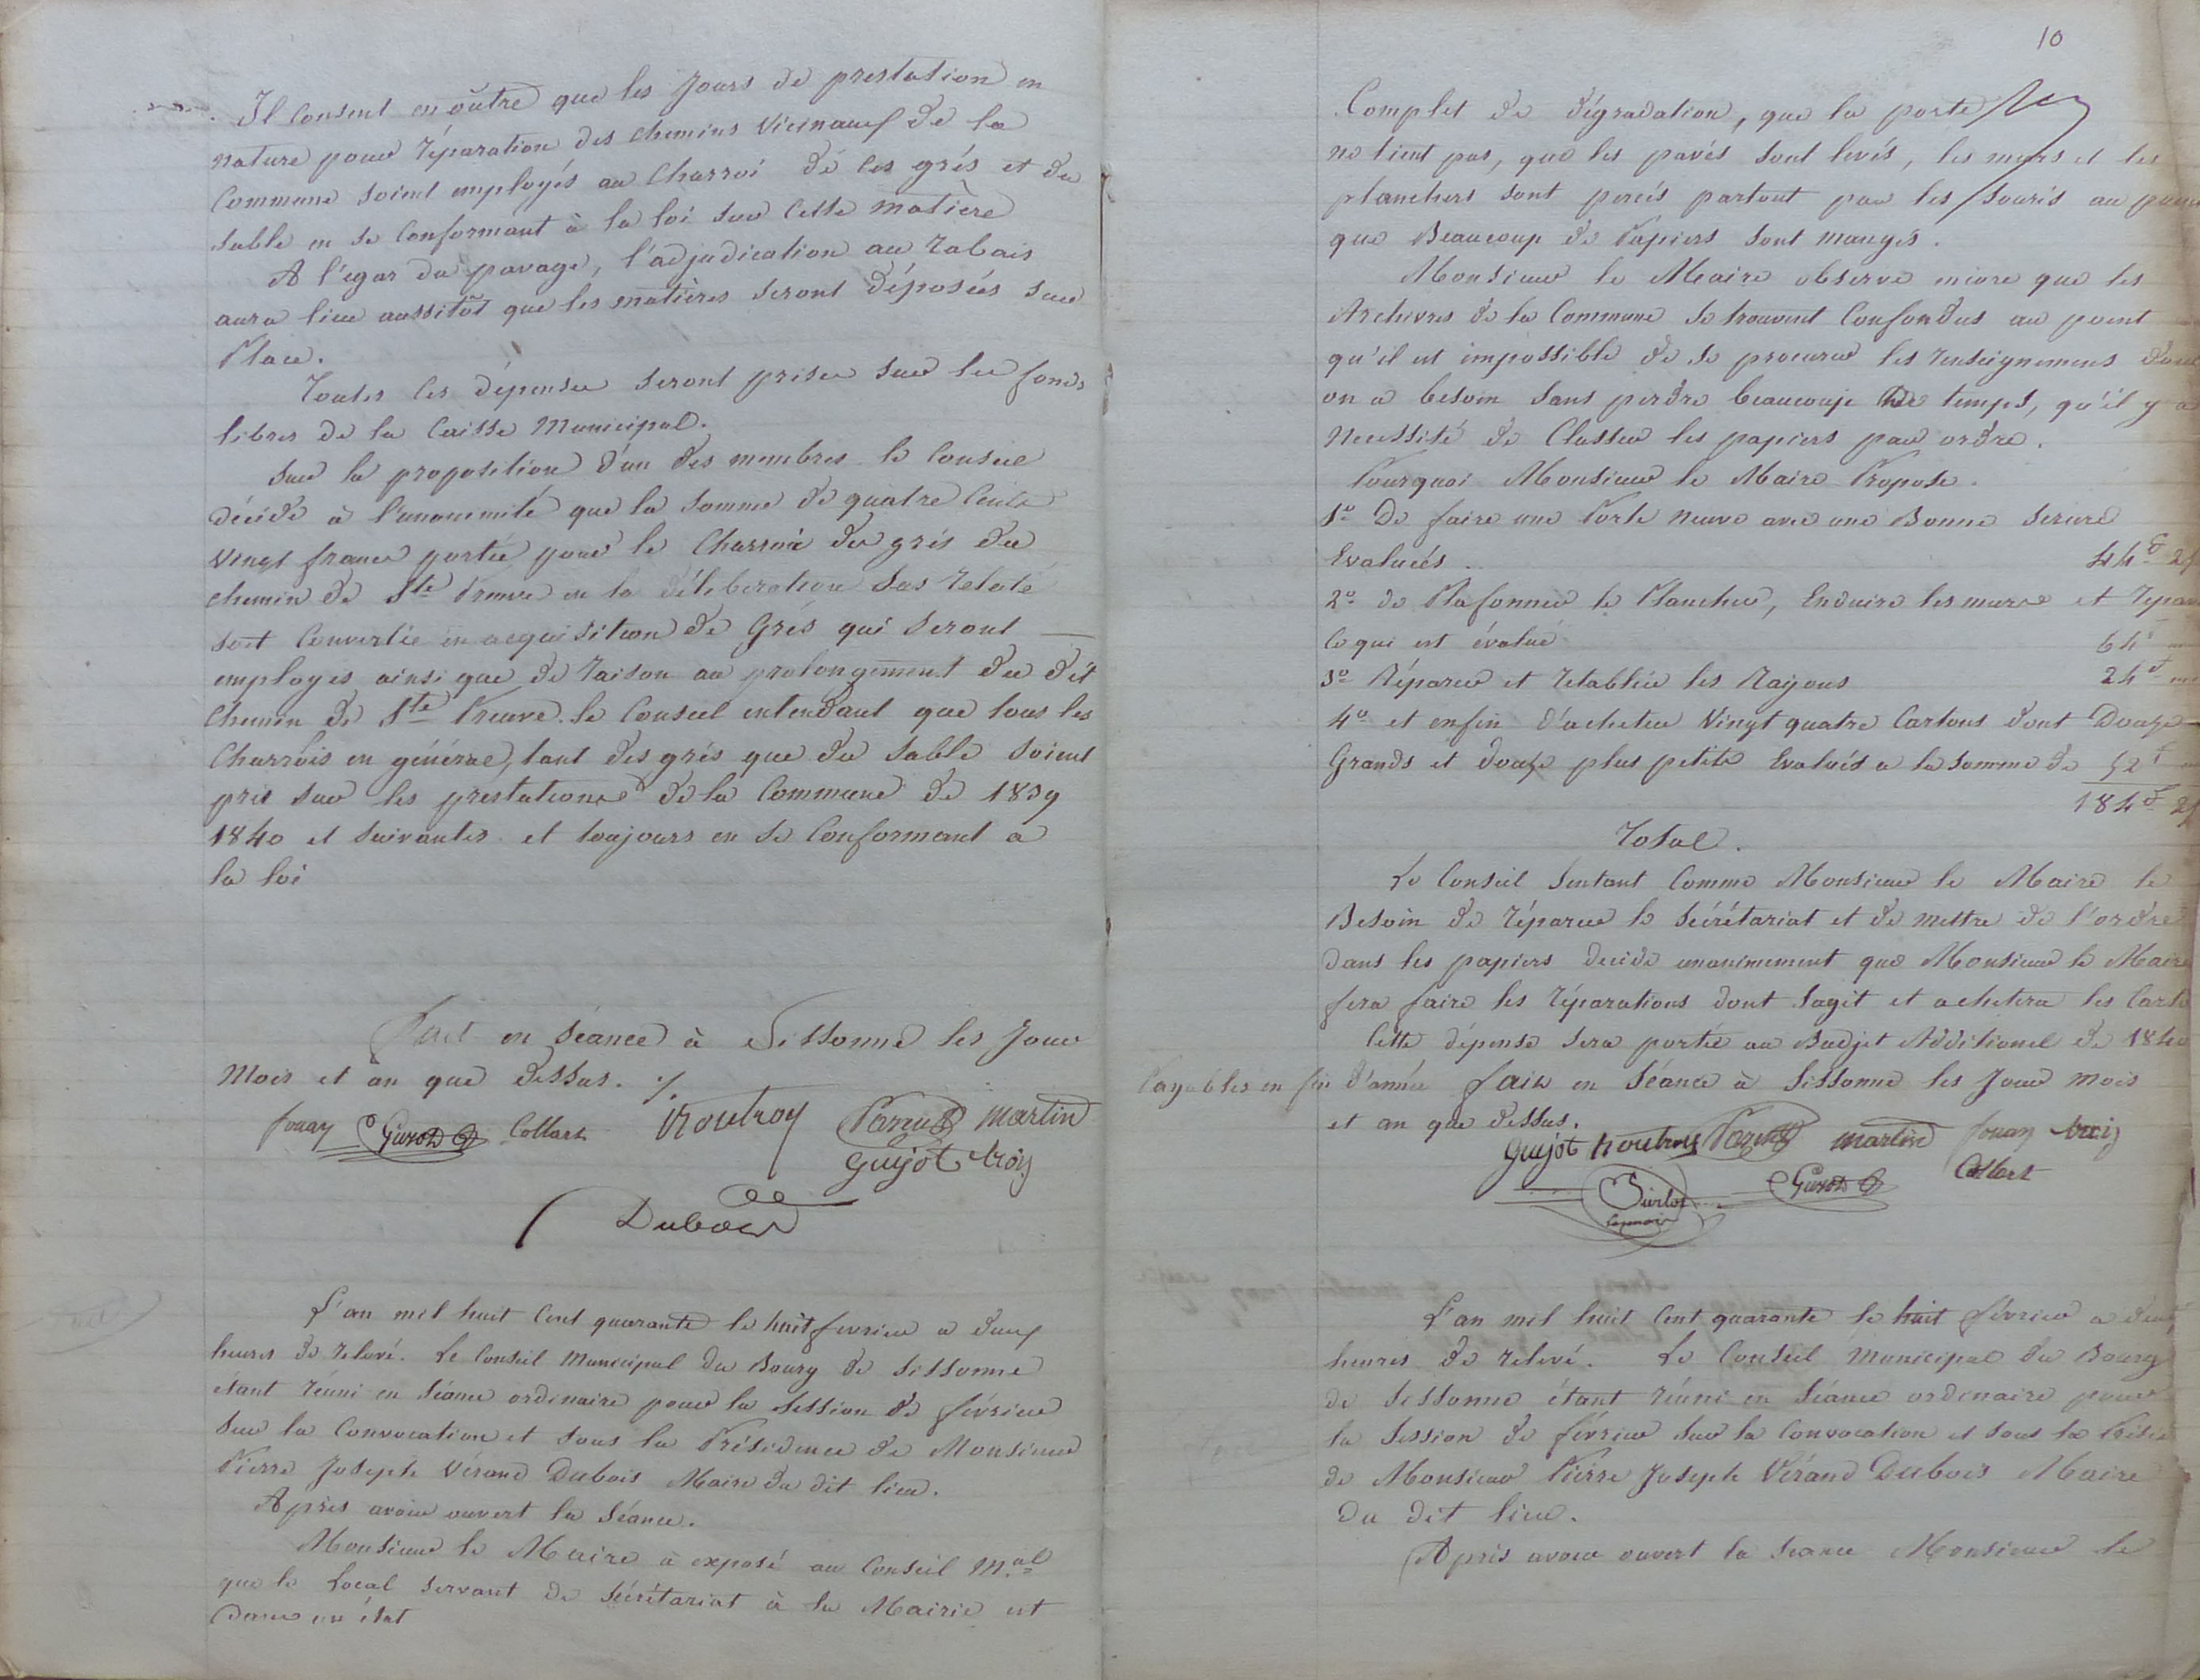 Il Consent en oûtre que les Jours de prestation en
nature pour réparation des chemins Vicinauf de la
Commune soient employés au Charroi de ces grés et du
sable en se Conformant à la loi sur Cette matière
A l'egar du pavage, l'adjudication au rabais
aura lieu aussitôt que les matières seront déposées sur
Place.
Toutes les dépenses seront prises sur les fonds
libres de la Caisse Municipal.
Sur la proposition d'un des membres le Conseil
décide à l'unanimité que la somme de quatre Cents
Vingt francs portée pour le Charroi des grés du
chemin de Ste Preuve en la délibération Sus relaté
soit Convertie en acquisition de Grés qui seront
employés ainsi que de raison au prolongement du dit
Chemin de Ste Preuve. le Conseil entendant que tous les
Charrois en général, tant des grés que du Sable soient
pris sur les prestations de la Commune de 1839
1840 et suivantes et toujours en se Conformant a
la loi
Fait en séance à Sissonne les Jour
Mois et an que dessus. ./.
fouay Guiot Collart Routroy Parent Martin
Guyot troij
Dubois
L'an mil huit Cent quarante le huit fevrier a deuf
heures de relevé. Le Conseil Municipal du Bourg de Sissonne
étant réuni en Séance ordinaire pour la Session de février
Sur la Convocation et sous la Présidence de Monsieur
Pierre Joseph Vérand Dubois Maire du dit lieu.
Après avoir ouvert la Séance.
Monsieur le Maire à exposé au Conseil M.al
que le Local servant de Sécrétariat à la Mairie est
dans un état
10
Complet de dégradation, que la porte
ne tient pas, que les pavés sont levés, les murs et les
planchers sont percés partout par les souris au point
que Beaucoup de Papiers sont mangés.
Monsieur le Maire observe encore que les
Archives de la Commune se trouvent Confondus au point
qu'il est impossible de se procurer les renseignemens dont
on a besoin sans perdre beaucoup de temps, qu'il y a
Necessité de Classer les papiers par ordre.
Pourquoi Monsieur le Maire Propose.
1o De faire une Porte neuve avec une Bonne Serure
Evaluées .. 44f 25
2o de Plafonner le Plancher, Enduire les murs et
Ce qui est évalué 64f
3o Réparer et retablir les Rayons 24f
4o et enfin d'acheter Vingt quatre Cartons dont Douze
Grands et douze plus petits Evalués a la somme de 52f
184f 25
Total.
Le Conseil Sentant Comme Monsieur le Maire le
Besoin de réparer le Sécrétariat et de mettre de l'ordre
dans les papiers decide unanimement que Monsieur le Maire
fera faire les réparations dont sagit et achetera les
Cette dépense sera portée au Budjet Additionel de 1840
Payables en fin d'année fait en Séance à Sissonne les Jour mois
et an que dessus.
Guyot Routroy Parent Martin fouay troij
Guiot Collart
L'an mil huit Cent quarante le huit février a
heures de relevé. Le Conseil Municipal du Bourg
de Sissonne étant réuni en Séance ordinaire pour
la Session de février sur la Convocation et sous la
de Monsieur Pierre Joseph Vérand Dubois Maire
du dit lieu.
Après avoir ouvert la Séance Monsieur le